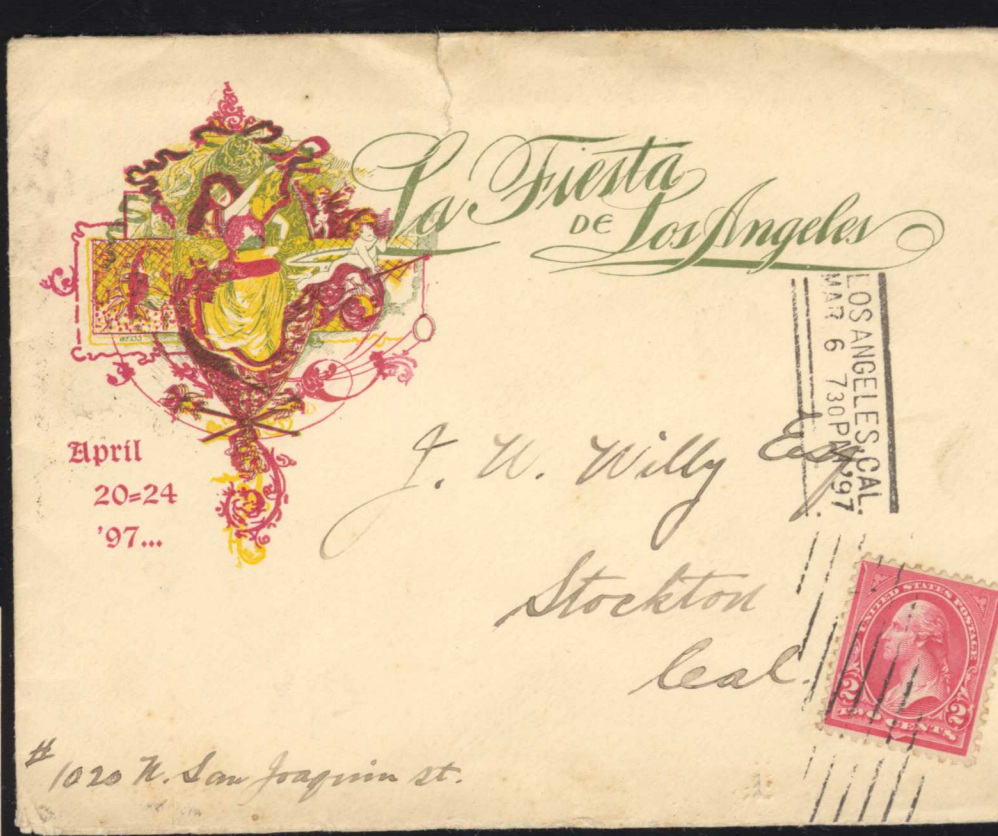 La Fiesta
DE Los Angeles
LOS ANGELES, CAL.
MAR 6 730PM '97
April
20=24
'97...
J. W. Willy Esq.
Stockton
Cal.
UNITED STATES POSTAGE
2 2
TWO CENTS
# 1020 N. San Joaquin st.